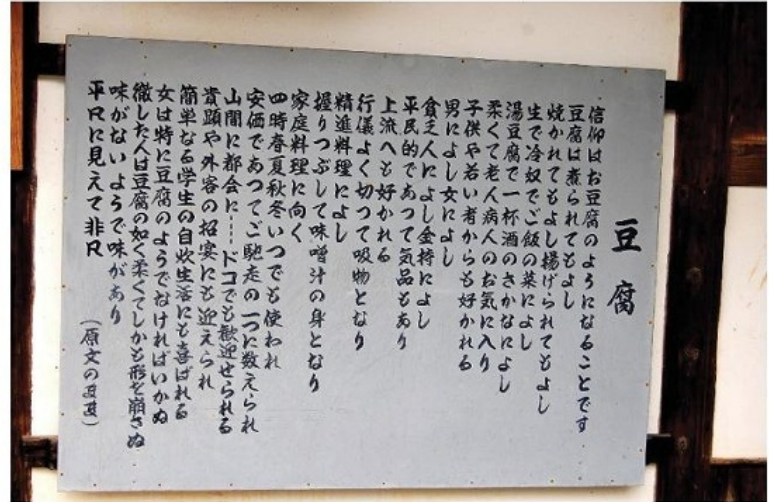 豆腐
信仰はお豆腐のようになることです
豆腐は煮られてもよし
焼かれてもよし揚げられてもよし
生で冷奴でご飯の菜によし
湯豆腐で一杯酒のさかなによし
柔くて老人病人のお気に入り
子供や若い者からも好かれる
男によし女によし
貧乏人によし金持によし
平民的であつて気品もあり
上流へも好かれる
行儀よく切つて吸物となり
精進料理によし
握りつぶして味噌汁の身となり
家庭料理に向く
四時春夏秋冬いつでも使われ
安価であつてご馳走の一つに数えられ
山間に都会に----ドコでも歓迎せられる
貴顕や外客の招宴にも迎えられ
簡単なる学生の自炊生活にも喜ばれる
女は特に豆腐のようでなければいかぬ
徹した人は豆腐の如く柔くてしかも形を崩さぬ
味がないようで味があり
平凡に見えて非凡
(原文のまま)